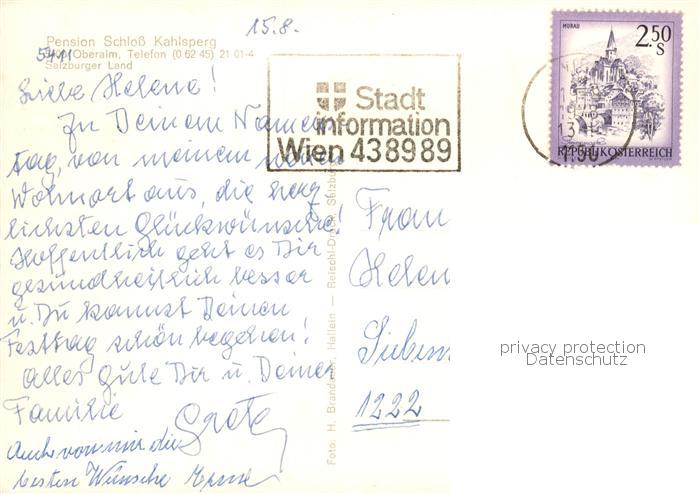 15.8.
Pension Schloß Kahlsperg
5411 Oberalm, Telefon (0 62 45) 21 01-4
Salzburger Land
Liebe Helene!
Zu Deinem Namens
tag, von meinem neuen
Wohnort aus, die herz
lichsten Glückwünsche!
Hoffentlich geht es Dir
gesundheitlich besser
u. Du kannst Deinen
Festtag schön begehen!
Alles Gute Dir u. Deiner
Familie
Auch von mir die
besten Wünsche
Foto: H. Brandauer, Hallein — Reischl-Druck, Salzburg
Stadt
information
Wien 43 89 89
MURAU
2.50
S
REPUBLIK ÖSTERREICH
1150
Frau
Helen
Sieben
1222
privacy protection
Datenschutz